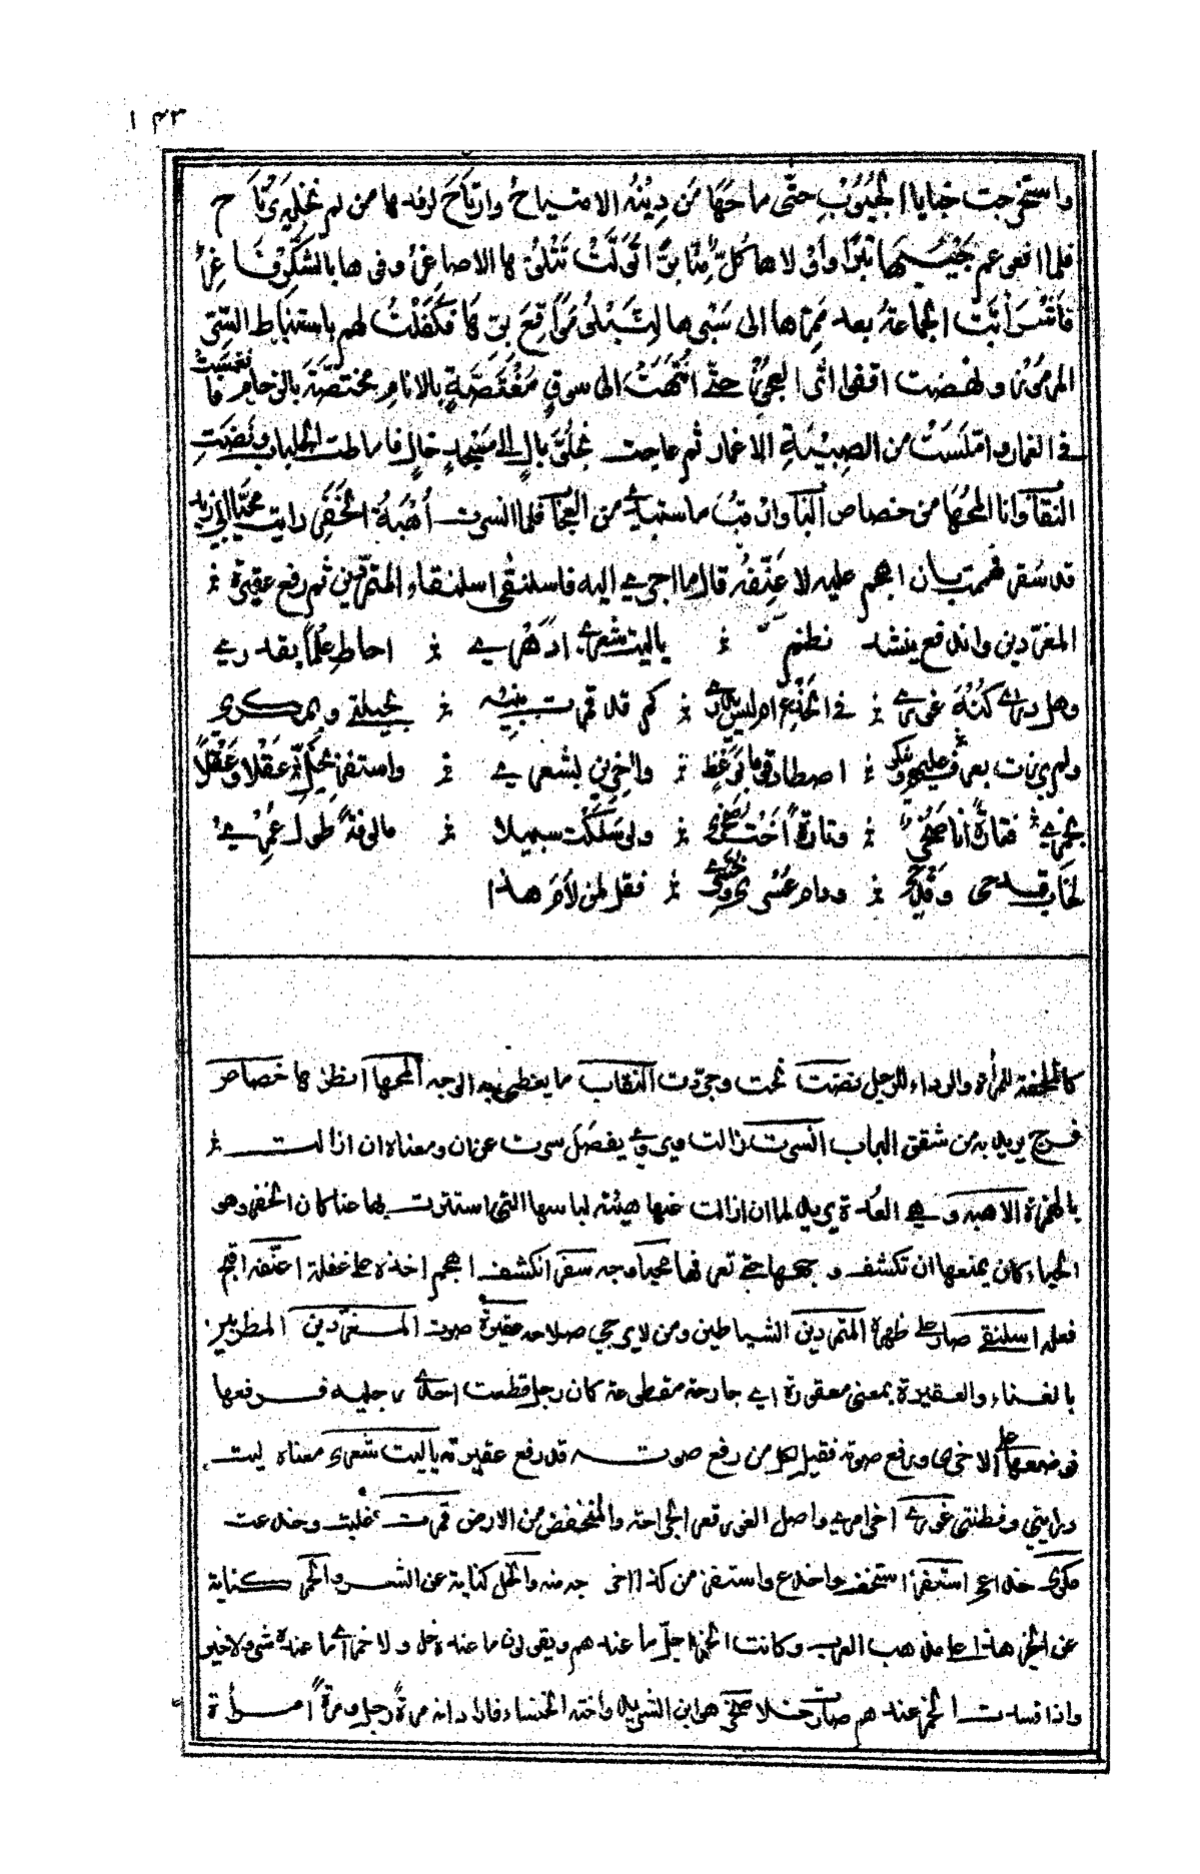 ١٤٣
واستخرجت خبايا الجُيُوبِ حتّى ماحَهَا مَن دِيْنُهُ الامتياحُ وارتَاحَ لرفدها من لم نَخَلْهُ يَرْتَاح
فلما افعوعم جَيْبُها تِبْرًا وأوْلاها كُلٌّ مِنّا بِرًّا تَوَلَّتْ تَتْلُوْها الاصاغرُ وفوها بالشكرِ فَاغِرٌ
فَاشْرَأبَّت الجماعةُ بعد مَمَرّها الى سَبْرِها لِتَبْلُوَ مَوَاقِعَ بِرِّهَا فكَفَلْتُ لهم باستنباطِ السِّرِّ
المرموز ونهضت اقفو اثر العجوز حتّى انْتَهَتْ الى سوقٍ مُغْتَصَّةٍ بالانامِ مختصّةٍ بالزحام فانغمست
فى الغمار وامّلَسَتْ من الصِبْيَةِ الاغمار ثم عاجت بخُلُوِّ بالٍ الى مَسْجِدٍ خالٍ فاماطت الجلباب ونَضَتِ
النقاب وانا المحُهَا من خصاص الباب وارقُبُ ما ستبدي من العجاب فلما انسرت أُهْبَةُ الخَفَرِ رايت محيّا ابي زيد
قد سَفَر فهممت بان اهجم عليه لاعَنِّفَهُ على ما اجرى اليه فاسلنقى اسلنقاء المتمرّدين ثم رفع عقيرة
المغرّدين واندفع ينشد نظم ياليت شعرى ادهرى احاط علمًا بقدرى
وهل درى كُنْهَ غورى فى الخَدْعِ ام ليس يدرى كم قد قمرت بنيه بحيلتي وبمكرى
وكم برزت بعرف عليهم وبنكر اصطاد قوما بوَعْظٍ وآخرين بشعرى واستفز بخَلٍّ عَقْلا وعَقْلاً
بخمرٍ فتارةً انا صَخْرٌ وتارةً أُخْتُ صَخْرٍ ولو سَلَكْتُ سبيلا مالوفةً طول عُمْرِى
لخاب قدحى وقَدْحِى ودام عُسْرى وخُسْرِى فقل لمن لامَ هذا
كالملحفة للمرأة والرداء للرجل نضت نحت وجرّدت النقاب ما يغطى به الوجه المحها انظرها خصاص
فرج يريد به من شقوق الباب انسرت زالت ويروى يفصل سرت عربان ومعناه ان ازالت
بالخمرة الاهبه وهى العُدة يريد لما ان ازالت عنها هيئة لباسها التى استترت بها حتا كان الخفر وهو
الحياء كان يمنعها ان تكشف وجهها حتى تعرفها محيا وجه سفر انكشف اهجم اخذه على غفلة اعنّفه اقبح
فعله اسلنقى صار على ظهره المتمردين الشياطين ومن لا يرجى صلاحه عقيرة صوت المغرّدين المطربين
بالغناء والعقيرة بمعنى معقورة اى جارحة مقطوعة كان رجل قطعت احدى رجليه فرفعها
فوضعها على الاخرى ورفع صوته فقيل لكل من رفع صوت قد رفع عقيرته ياليت شعرى معناه ليت
درايتي وفطنتي غورى اخر امرى واصل الغور قعر الجراحته والمنخفض من الارض قمرت غلبت وخدعت
مكرى خداعى استفز استخف واخدع واستفز من كذا اخرجه منه والخل كناية عن الشر والخمر كناية
عن الخير هذا على مذهب العرب وكانت الخمر اجلّ ما عندهم ويقولون ما عنده خل ولا خمر اى ما عنده شر ولا خير
واذا فسدت الخمر عندهم صارت خلا صخر هو ابن الشريد واخته الخنساء فاراد انه مرةً رجل ومرةً امرأة